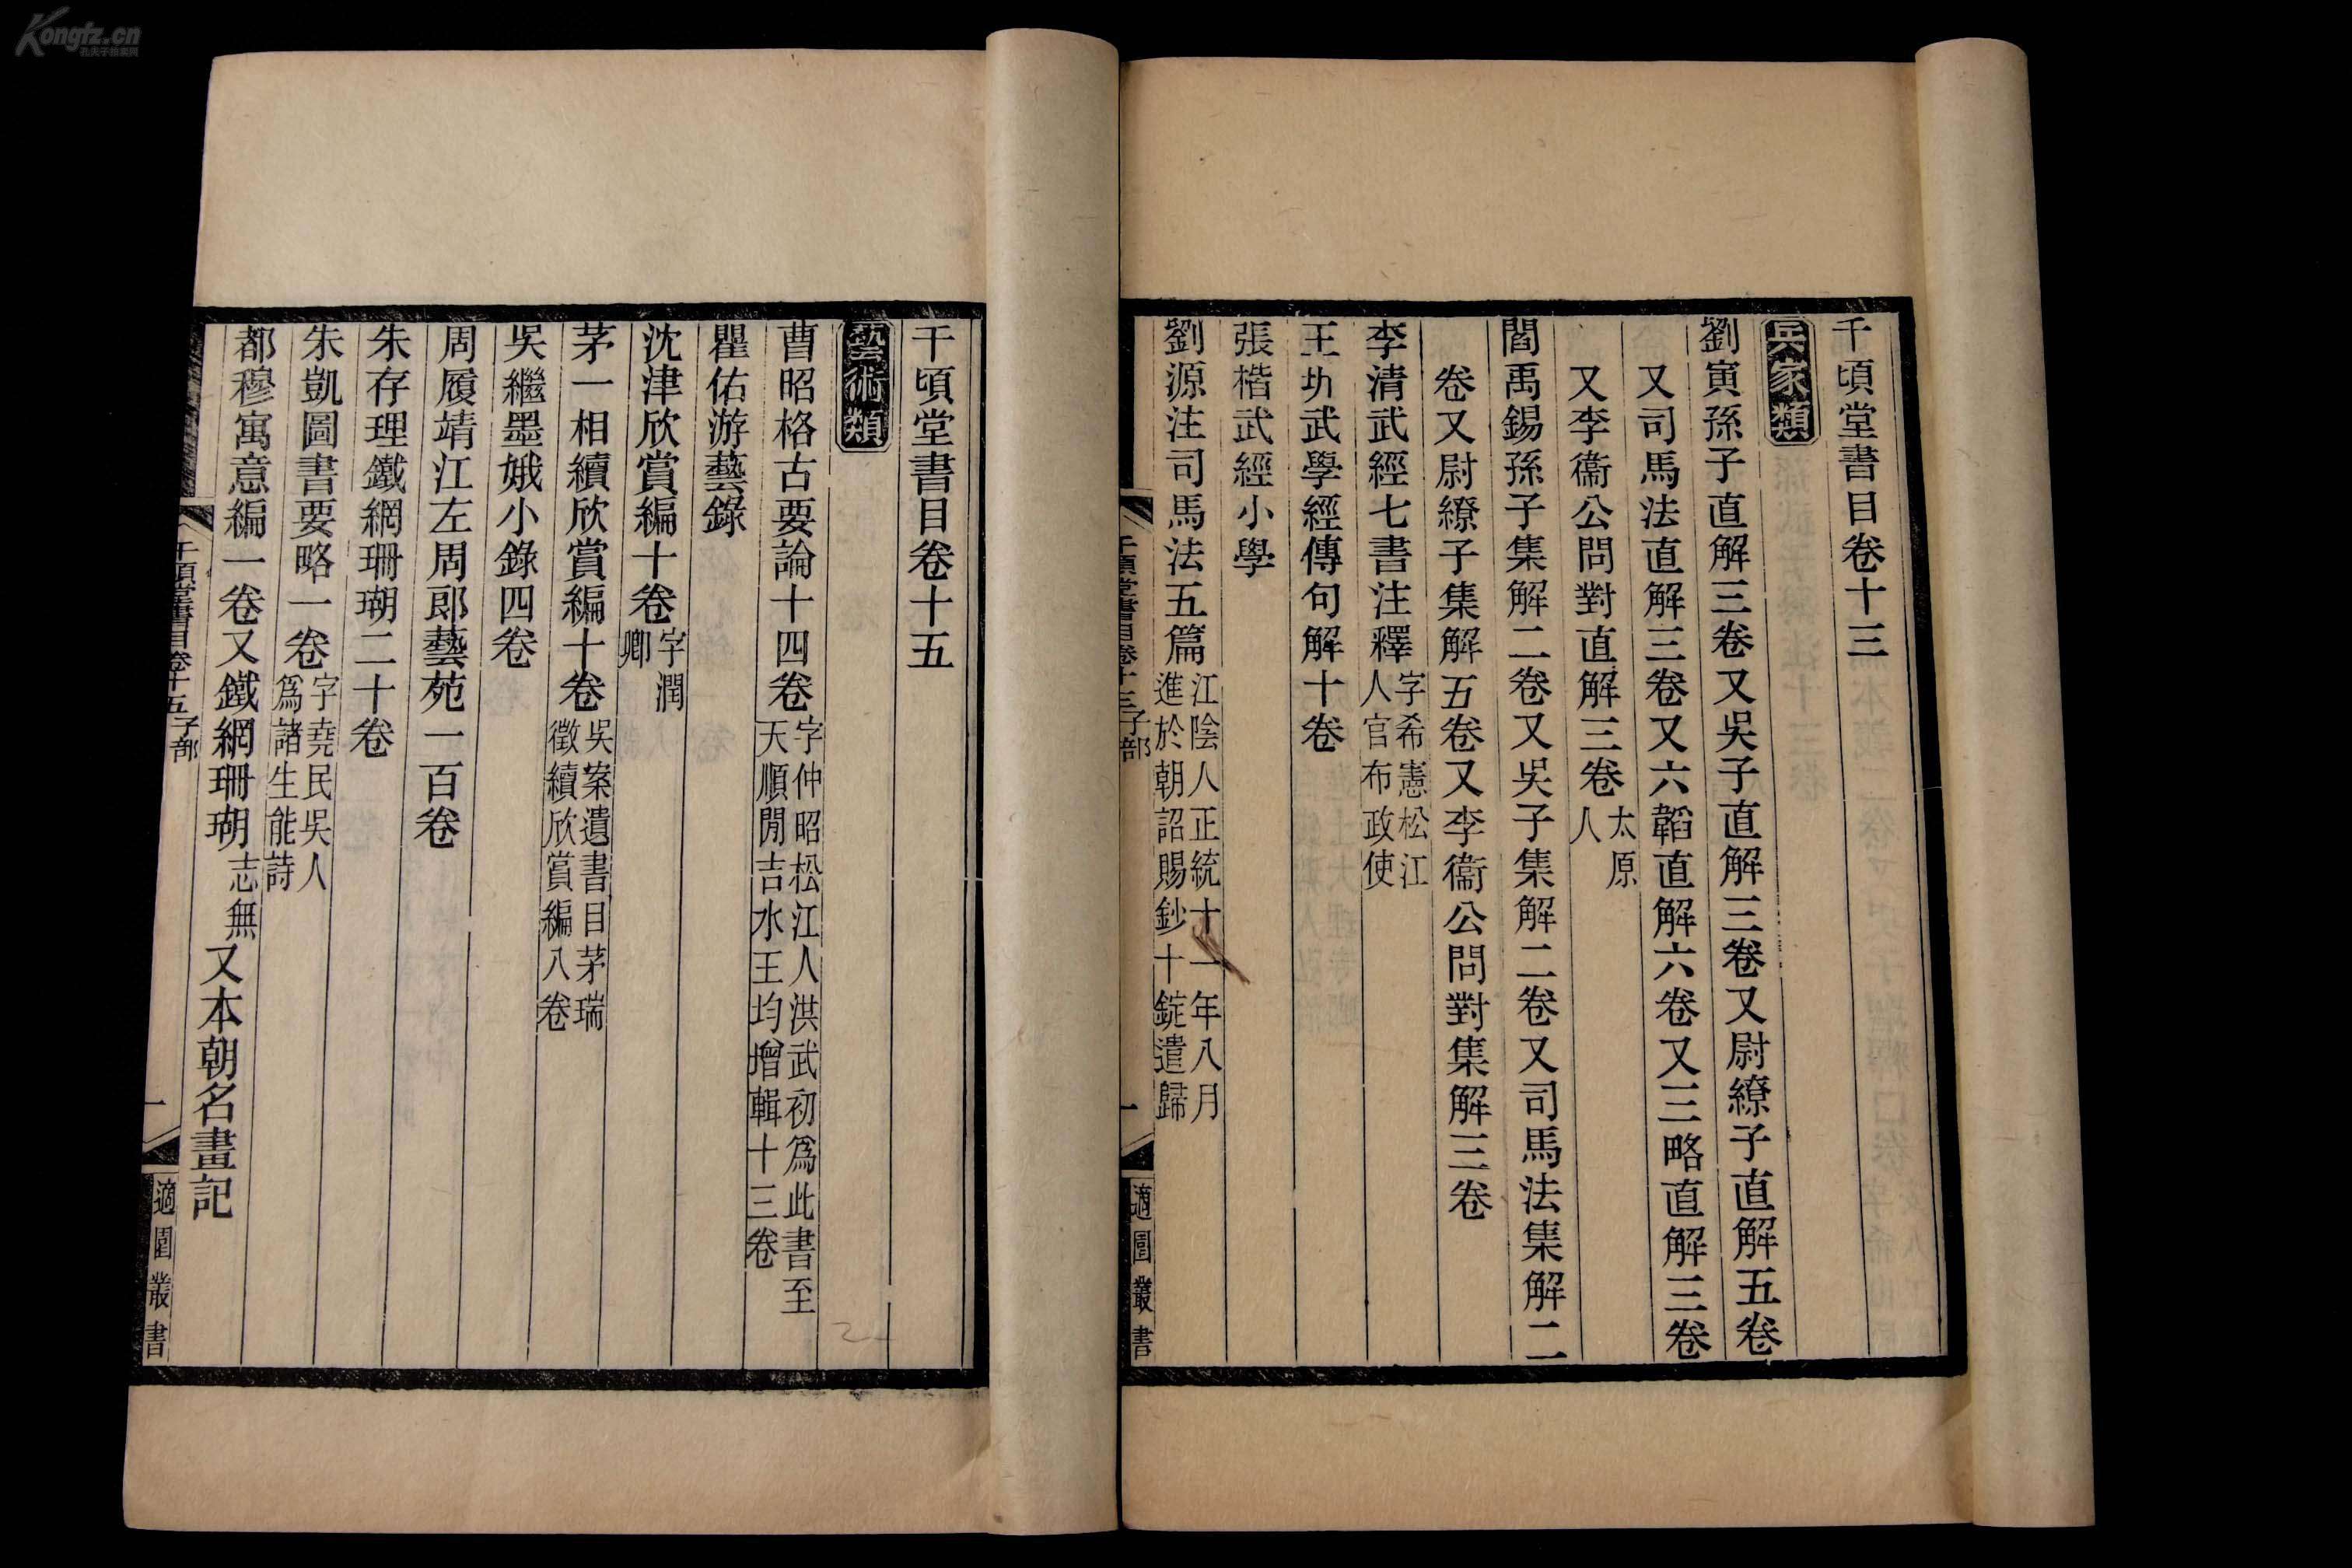 Kongfz.cn
千頃堂書目卷十三
兵家類
劉寅孫子直解三卷又吳子直解三卷又尉繚子直解五卷
又司馬法直解三卷又六韜直解六卷又三略直解三卷
又李衞公問對直解三卷太原人
閻禹錫孫子集解二卷又吳子集解二卷又司馬法集解二
卷又尉繚子集解五卷又李衞公問對集解三卷
李清武經七書注釋字希憲松江人官布政使
王圻武學經傳句解十卷
張楷武經小學
劉源注司馬法五篇江陰人正統十一年八月進於朝詔賜鈔十錠遣歸
千頃堂書目卷十三子部
一
適園叢書
千頃堂書目卷十五
藝術類
曹昭格古要論十四卷字仲昭松江人洪武初爲此書至天順閒吉水王均增輯十三卷
瞿佑游藝錄
沈津欣賞編十卷字潤卿
茅一相續欣賞編十卷吳案遺書目茅瑞徵續欣賞編八卷
吳繼墨娥小錄四卷
周履靖江左周郎藝苑一百卷
朱存理鐵網珊瑚二十卷
朱凱圖書要略一卷字堯民吳人爲諸生能詩
都穆寓意編一卷又鐵網珊瑚志無又本朝名畫記
千頃堂書目卷十五子部
一
適園叢書